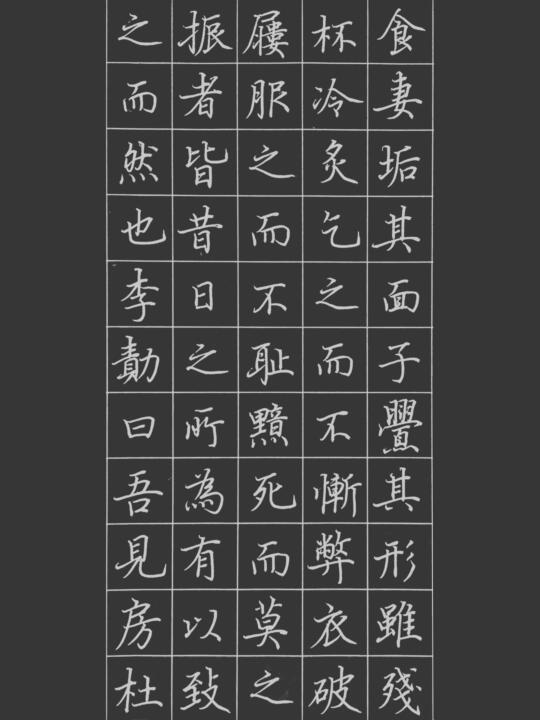 食妻垢其面子釁其形雖殘
杯冷炙乞之而不慚弊衣破
屨服之而不恥黯死而莫之
振者皆昔日之所為有以致
之而然也李勣曰吾見房杜